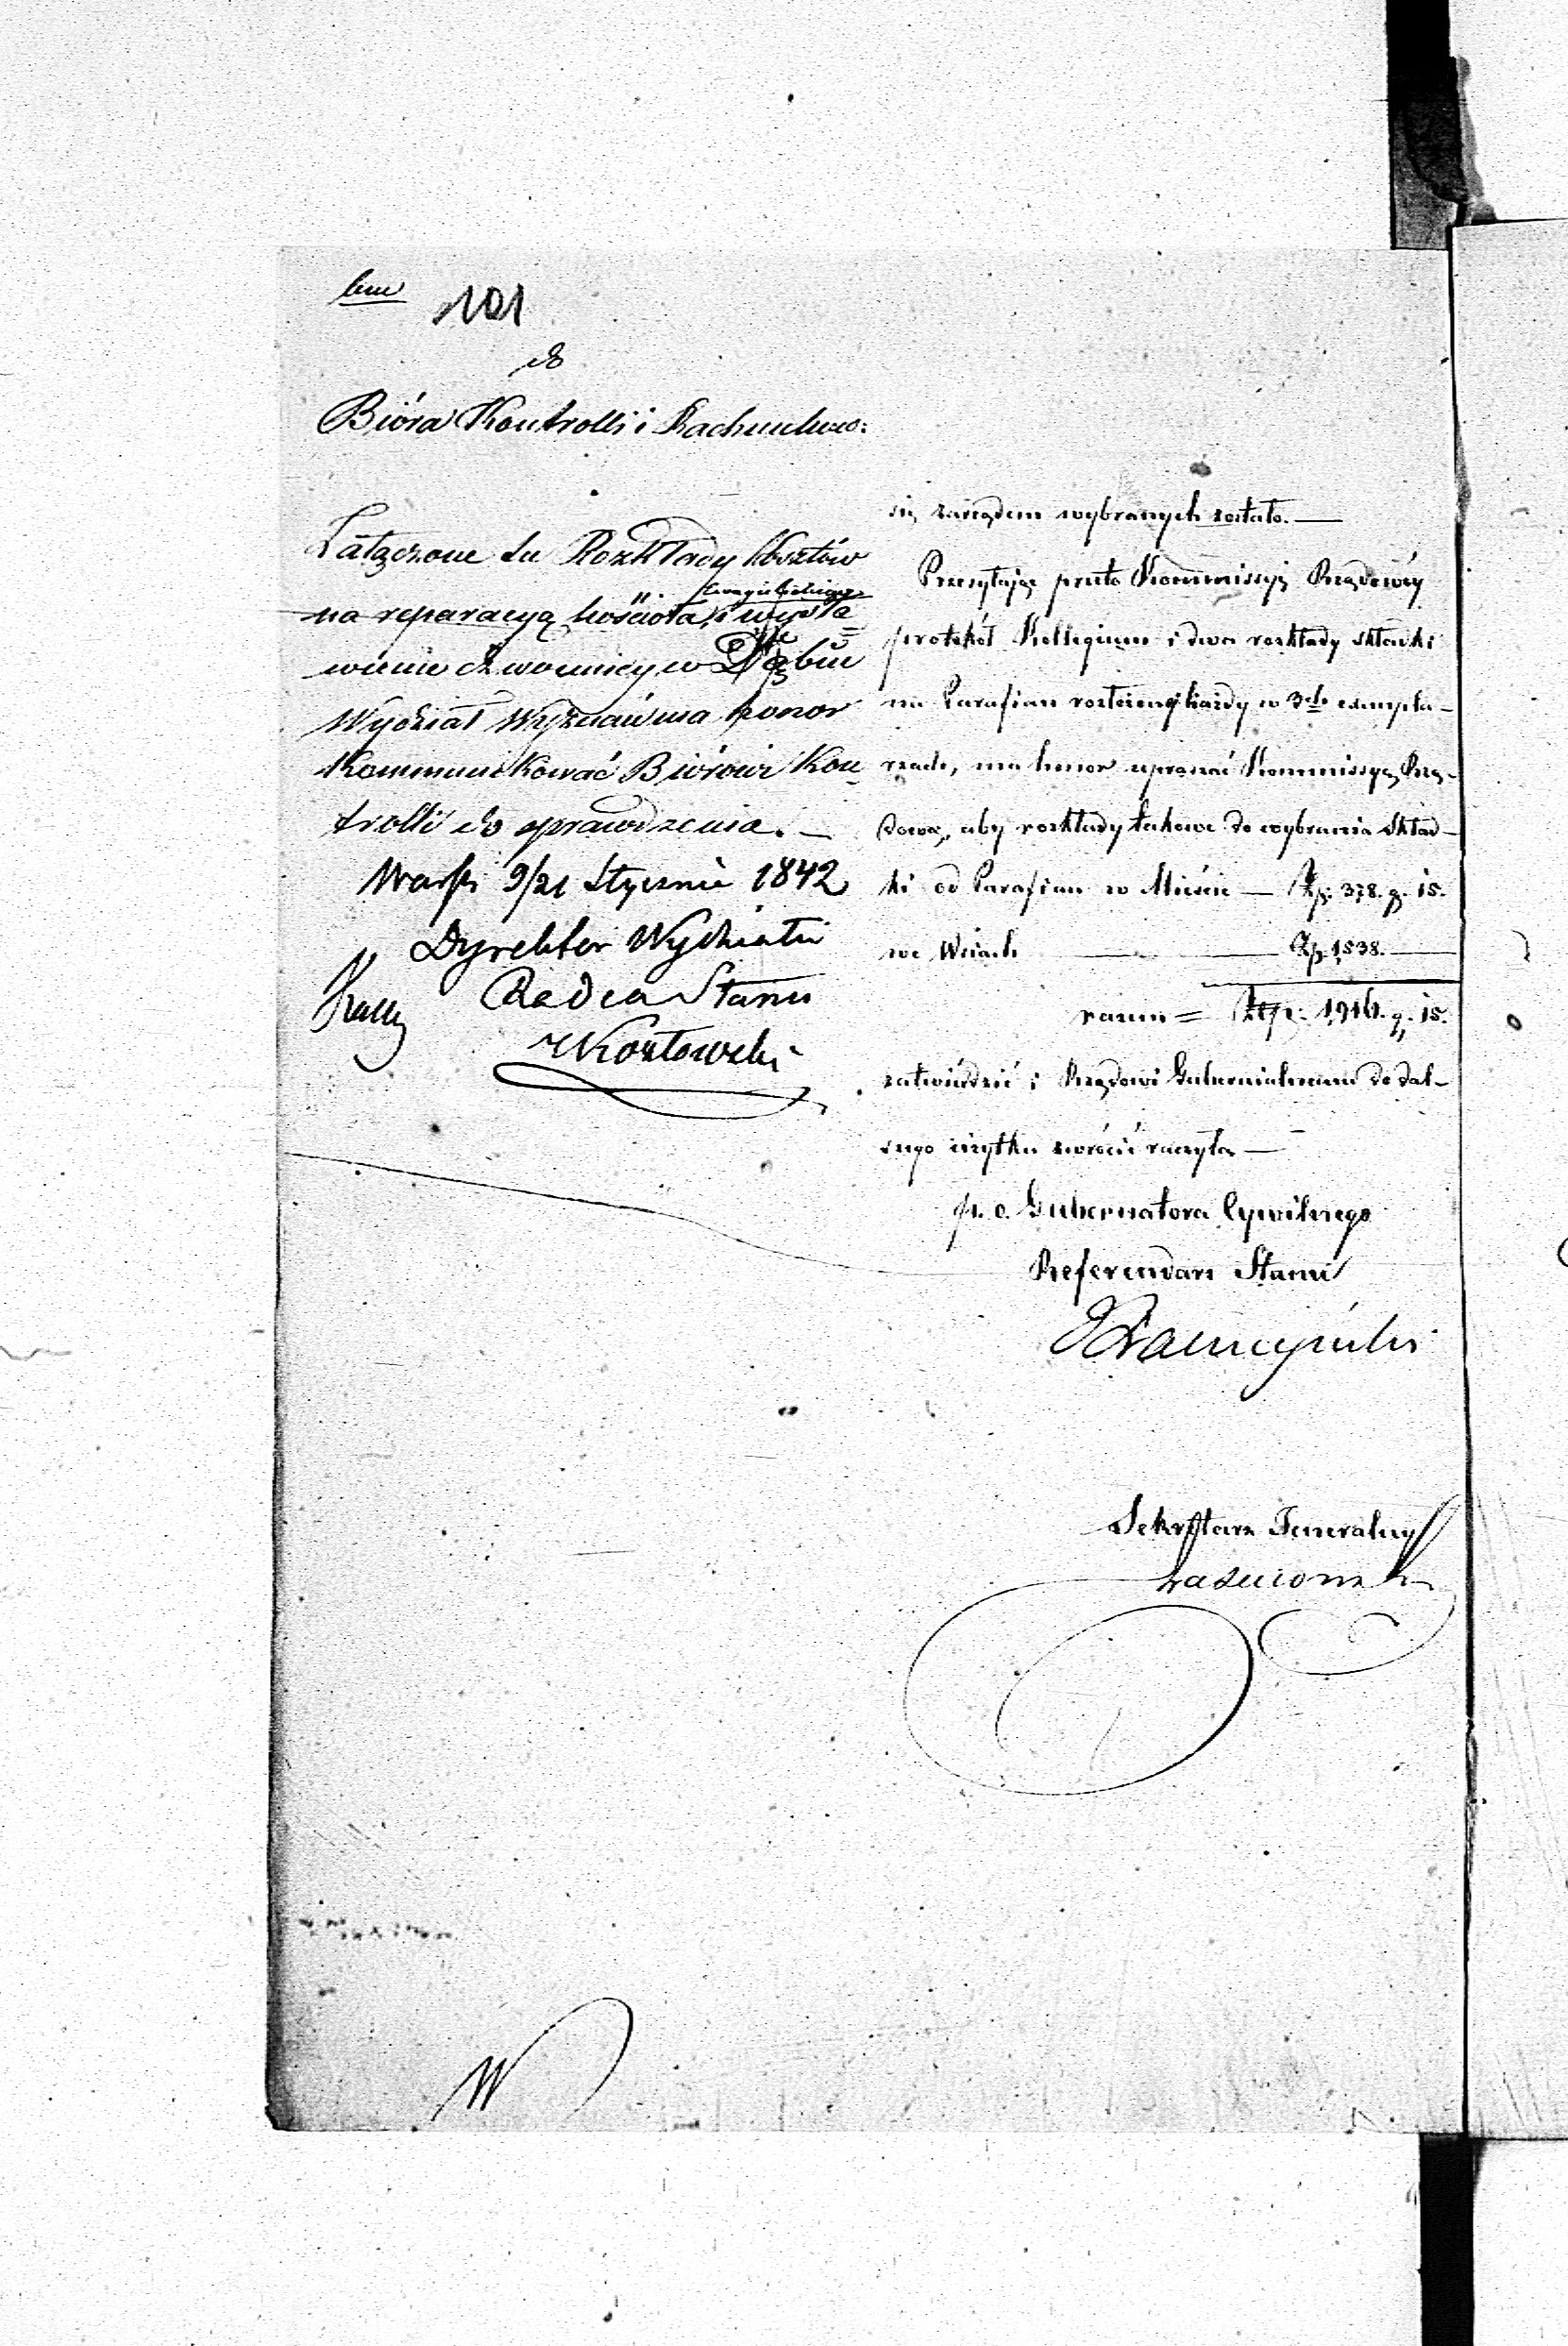 101
do
Bióra Kontrolli i Rachunkow:
Załączone tu Rozkłady kosztów
Ewangielickiego
na reparacyą kościoła, i wysta=
wienie dzwonnicy w Dąbiu
Wydział Wyznań ma honor
Kommunikować Biórowi Kon-
trolli do sprawdzenia. —
Warsz. 9/21 Stycznia 1842
Dyrektor Wydziału
Radca Stanu
Kozłowski
się zarządem wybranych zostało. —
Przesyłając przeto Kommissyi Rządowéy
protokół Kollegium i dwa rozkłady składki
na Parafian rozłożonéj każdy w 3ch exempla-
rzach, ma honor upraszać Kommissyę Rzą-
dową, aby rozkłady takowe do wybrania skład-
ki od Parafian w Mieście — Zp. 378. g. 15.
we Wsiach — Zp. 1,538. —
razem = Złp. 1,916. g. 15.
zatwierdzić i Rządowi Gubernialnemu do dal-
szego użytku zwrócić raczyła —
p. o. Gubernatora Cywilnego
Referendarz Stanu
Sekretarz Jeneralny